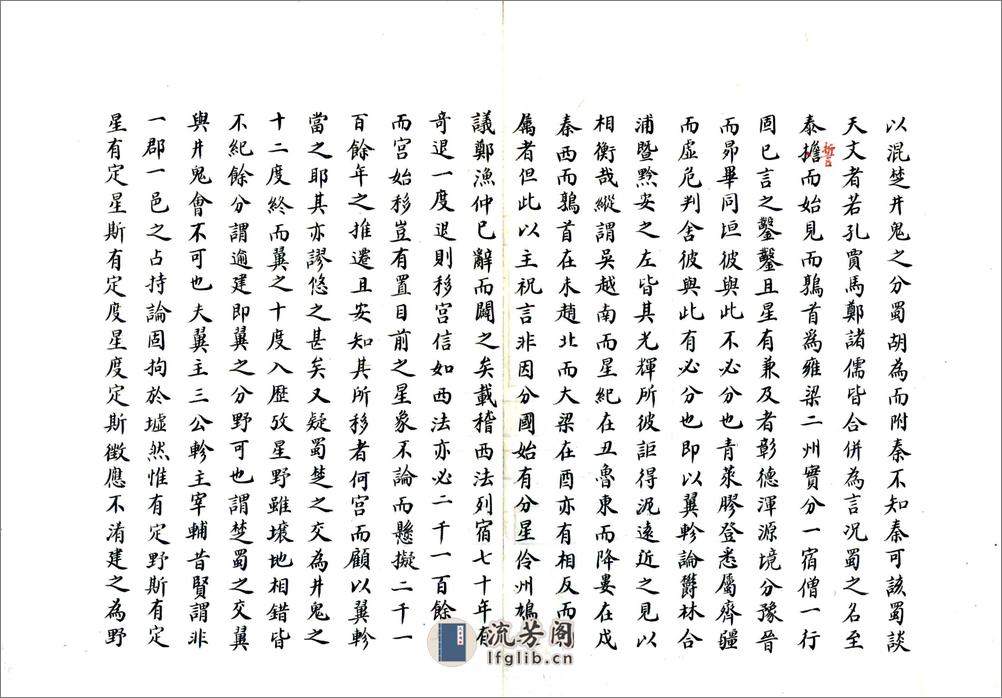 以混楚井鬼之分蜀胡為而附秦不知秦可該蜀談
天文者若孔賈馬鄭諸儒皆合併為言况蜀之名至
秦擔而始見而鶉首為雍梁二州實分一宿僧一行
固已言之鑿鑿且星有兼及者彰德渾源境分豫晉
而昴畢同垣彼與此不必分也青萊膠登悉屬齊疆
而虛危判舍彼與此有必分也即以翼軫論欝林合
浦暨黔安之左皆其光輝所彼詎得泥遠近之見以
相衡哉縱謂吳越南而星紀在丑魯東而降婁在戌
秦西而鶉首在未趙北而大梁在酉亦有相反而
屬者但此以主祝言非因分國始有分星伶州鳩
議鄭漁仲已辭而闢之矣載稽西法列宿七十年有
奇退一度退則移宮信如西法亦必二千一百餘
而宮始移豈有置目前之星象不論而懸擬二千一
百餘年之推遷且安知其所移者何宮而顧以翼軫
當之耶其亦謬悠之甚矣又疑蜀楚之交為井鬼之
十二度終而翼之十度入歷攷星野雖壤地相錯皆
不紀餘分謂逾建即翼之分野可也謂楚蜀之交翼
與井鬼會不可也夫翼主三公軫主宰輔昔賢謂非
一郡一邑之占持論固拘於墟然惟有定野斯有定
星有定星斯有定度星度定斯徵應不淆建之為野
流芳阁
lfglib.cn